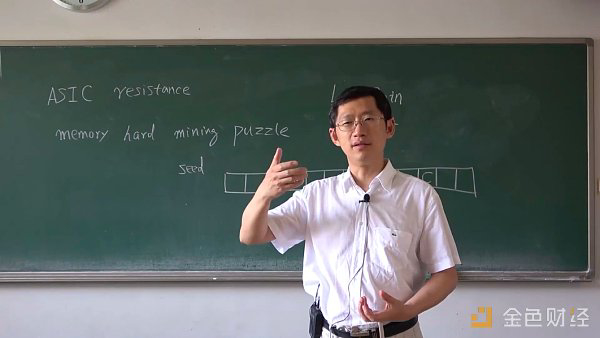 ASIC resistance
memory hard mining puzzle
seed
金色财经